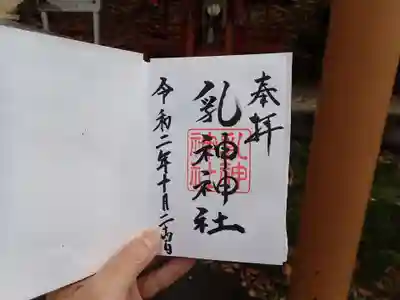 奉拝
乳神神社
乳神
神社
令和二年十月二十五日